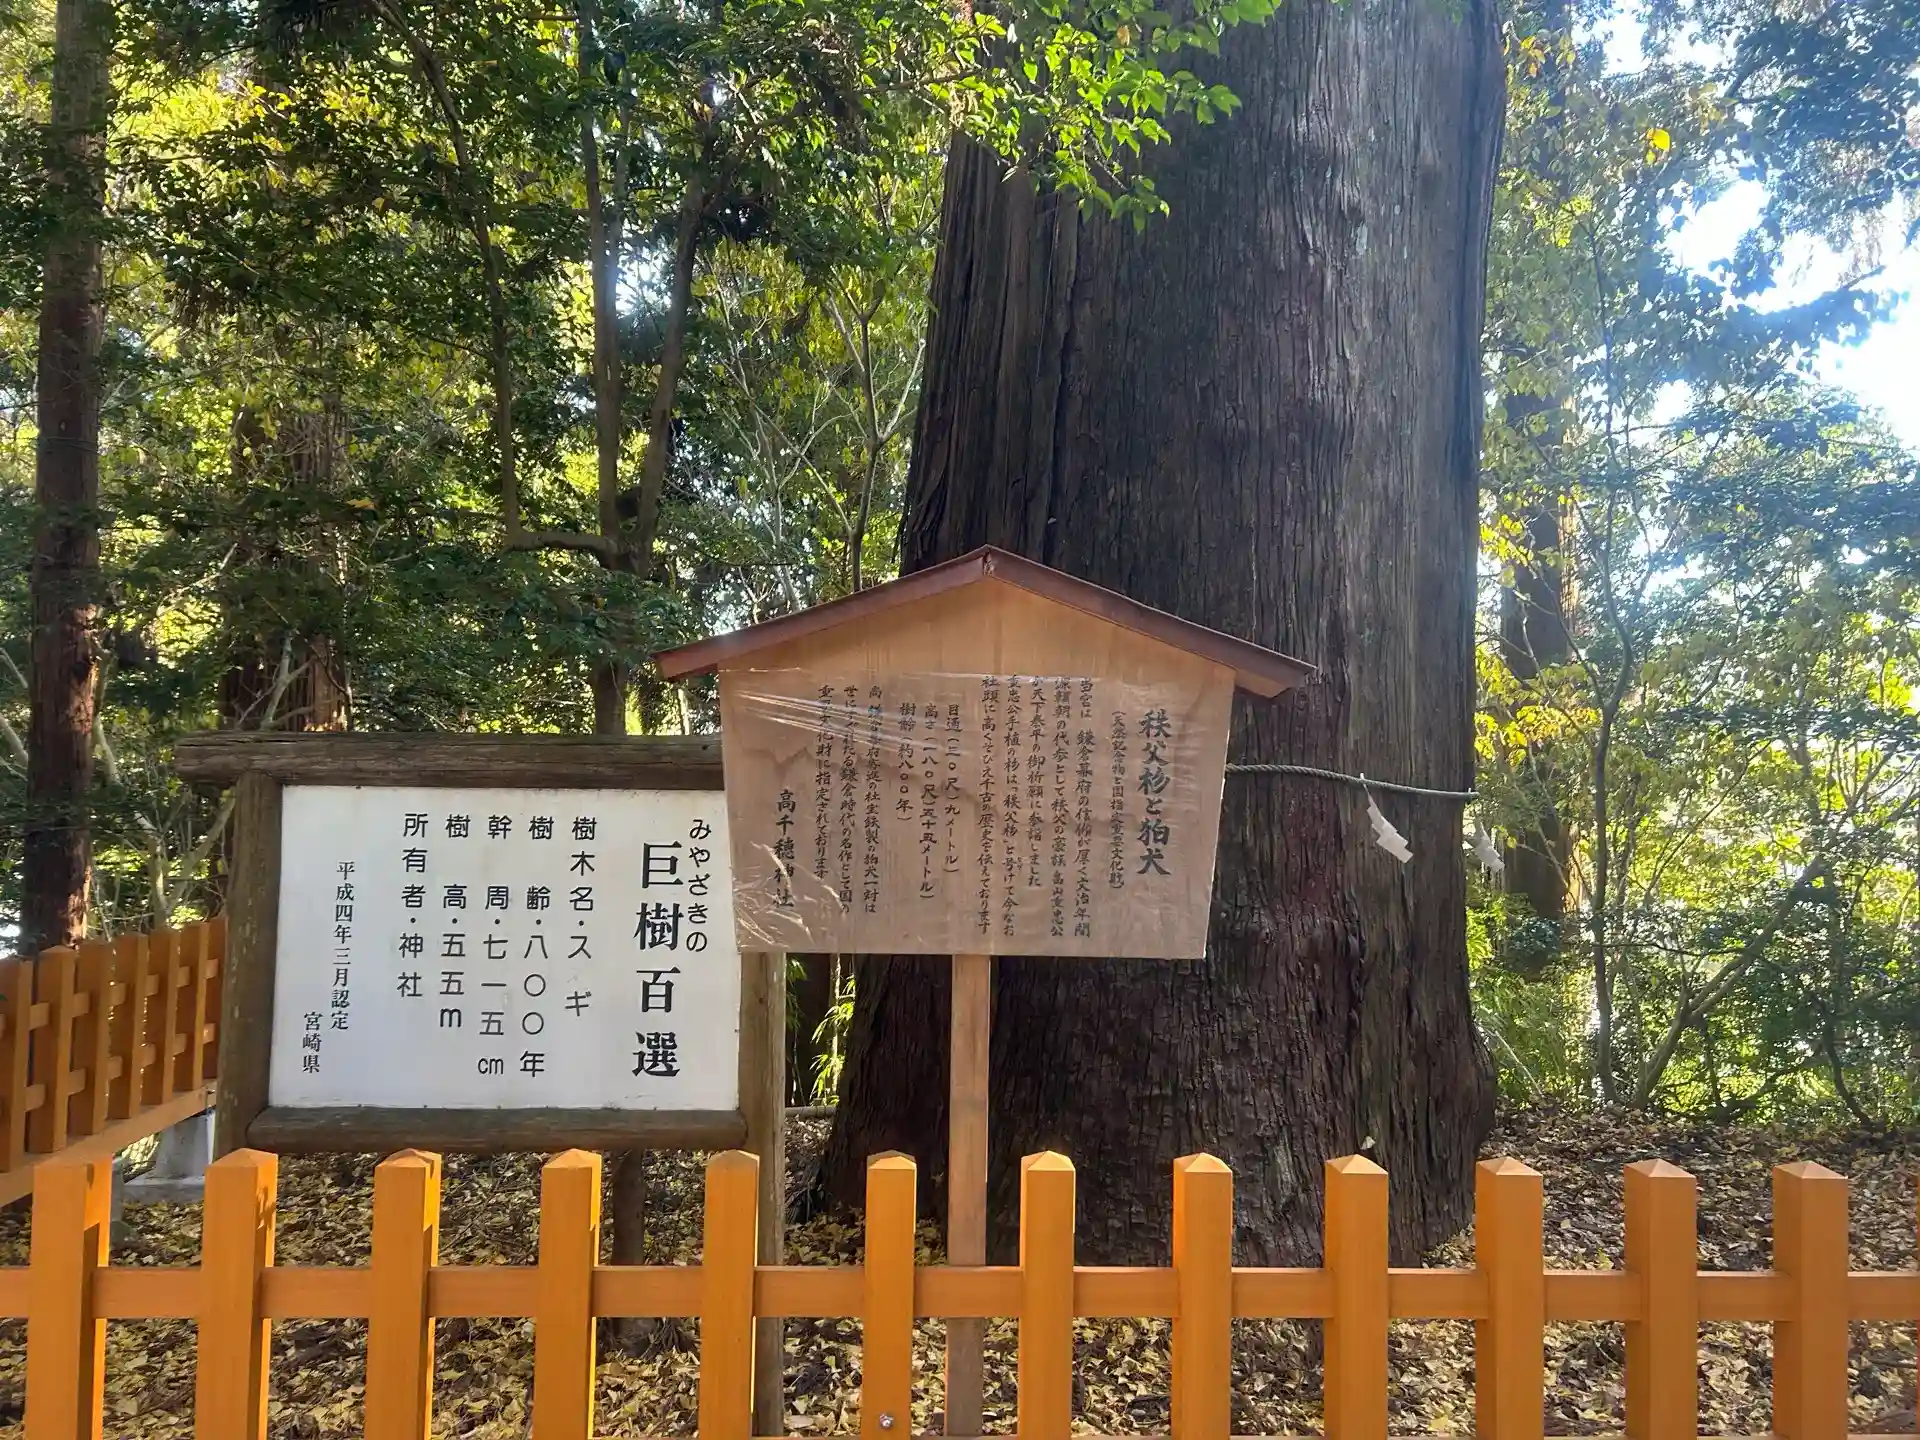 みやざきの
巨樹百選
樹木名・スギ
樹 齢・八〇〇年
幹 周・七一五cm
樹 高・五五m
所有者・神社
平成四年三月認定
宮崎県
秩父杉と狛犬
(天然記念物と国指定重要文化財)
当宮は 鎌倉幕府の信仰が厚く文治年間
源頼朝の代参として秩父の豪族畠山重忠公
が天下泰平の御祈願に参詣しました
重忠公手植の杉は「秩父杉」と号けて今なお
社頭に高くそびえ千古の歴史を伝えております
目通(三〇尺)九メートル)
高さ(一八〇尺)五十五メートル)
樹齢 約八〇〇年)
尚 鎌倉幕府寄進の社宝鉄製の狛犬一対は
世にかくれたる鎌倉時代の名作として国の
重要文化財に指定されております
高千穂神社